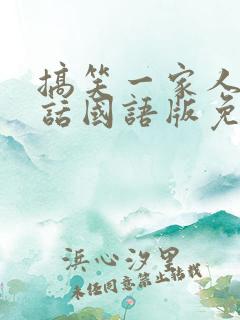 搞笑一家人
話國語版免
浜心汐里
未经同意禁止转载